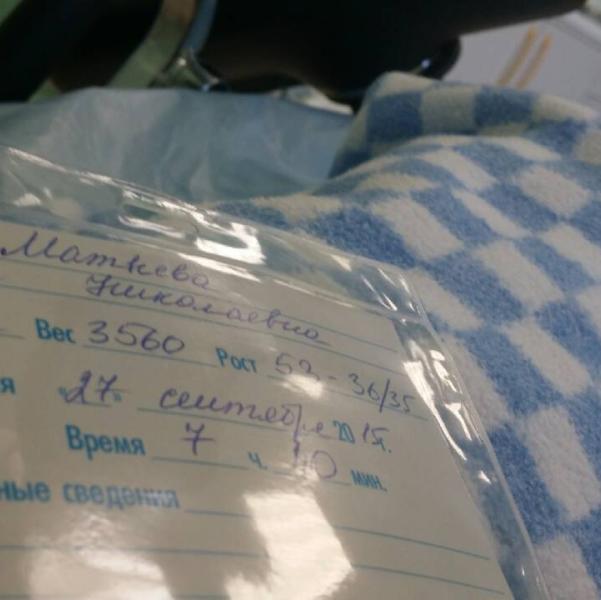 Матнева
Николаевна
Вес 3560 Рост 53 - 36/35
я "27" сентября 2015г.
Время 7 ч. 10 мин.
ные сведения